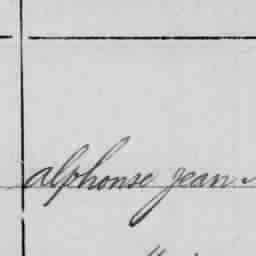 alphonse jean